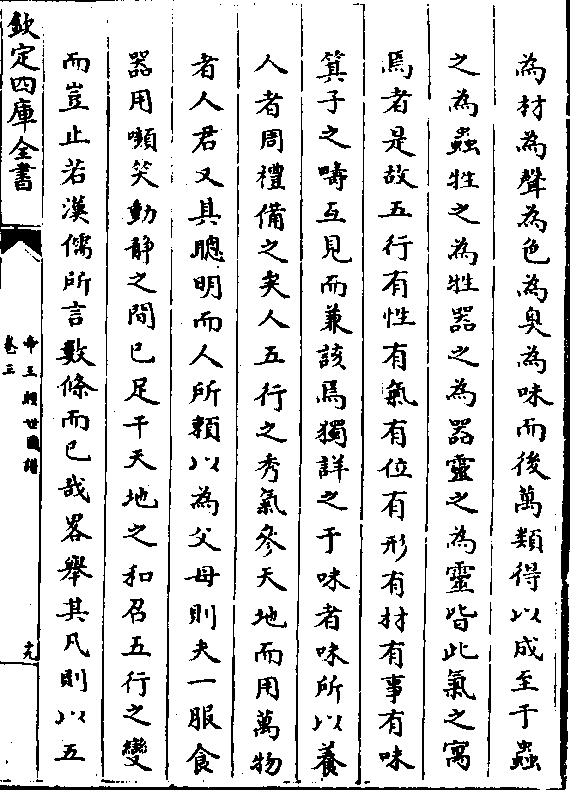 為材為聲為色為臭為味而後萬類得以成至于蟲
之為蟲牲之為牲器之為器靈之為靈皆此氣之寓
焉者是故五行有性有氣有位有形有材有事有味
箕子之疇互見而兼該焉獨詳之于味者味所以養
人者周禮備之矣人五行之秀氣參天地而用萬物
者人君又具聰明而人所賴以為父母則夫一服食
器用嚬笑動靜之間已足干天地之和召五行之變
而豈止若漢儒所言數條而已哉畧舉其凡則以五
欽定四庫全書
帝王經世圖譜
卷三